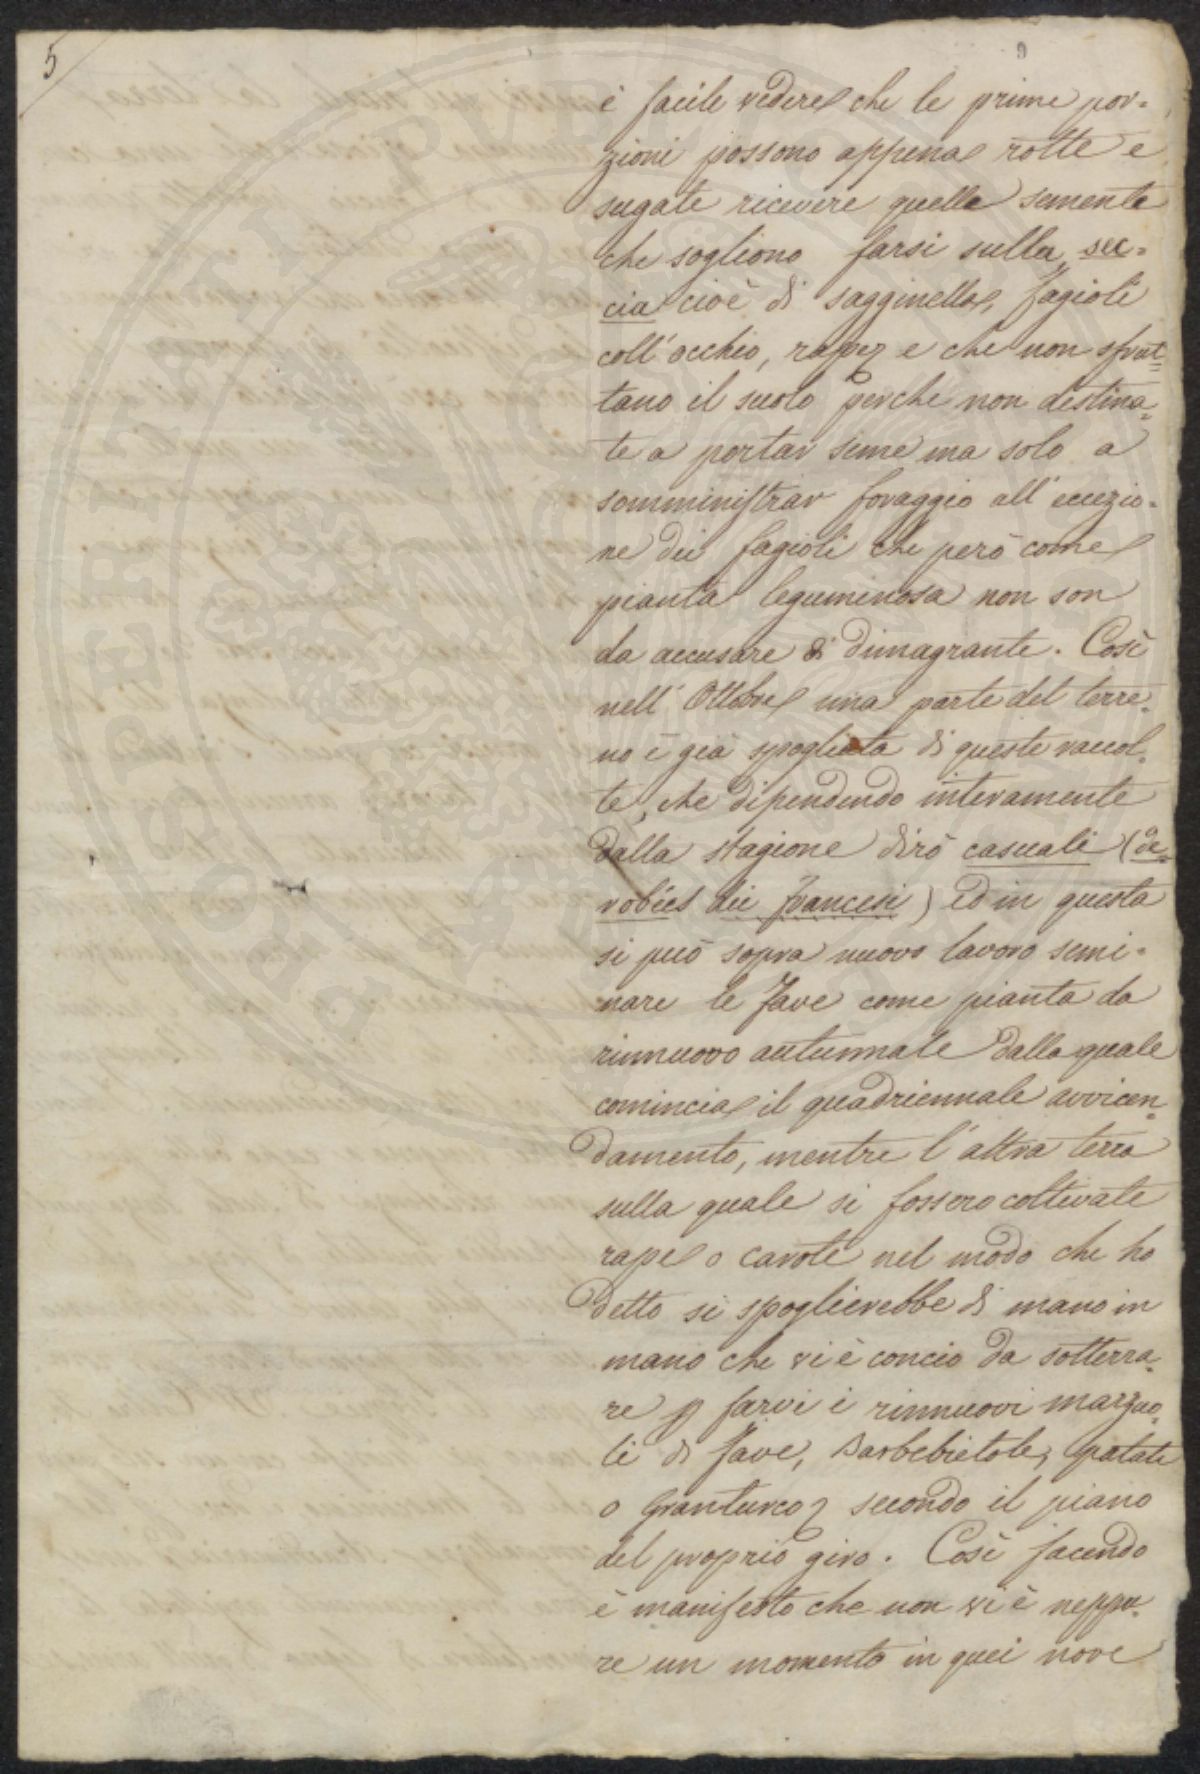 5
9
è facile vedere che le prime por=
zioni possono appena rotte e
sugate ricevere quelle semente
che sogliono farsi sulla sec=
cia cioè di sagginella, fagioli
coll'occhio, rape, e che non sfrut=
tano il suolo perche non destina=
te a portar seme ma solo a
somministrar foraggio all'eccezio=
ne dei fagioli che però come
pianta leguminosa non son
da accusare di dimagrante. Così
nell'Ottobre una parte del terre=
no è già spogliata di queste raccol=
te, che dipendendo interamente
dalla stagione dirò casuali (de=
robèes dei francesi) ed in questa
si può sopra nuovo lavoro semi=
nare le fave come pianta da
rinnuovo autunnale dalla quale
comincia il quadriennale avvicen=
damento, mentre l'altra terra
sulla quale si fossero coltivate
rape o carote nel modo che ho
detto si spoglierebbe di mano in
mano che vi è concio da sotterra=
re p farvi i rinnuovi marzuo=
li di fave, barbebietole, patate
o granturco, secondo il piano
del proprio giro. Così facendo
è manifesto che non vi è neppu=
re un momento in quei nove